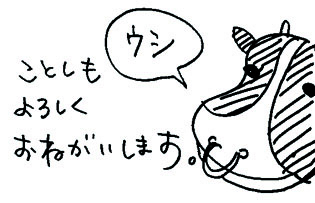 ウシ
ことしも
よろしく
おねがいします。